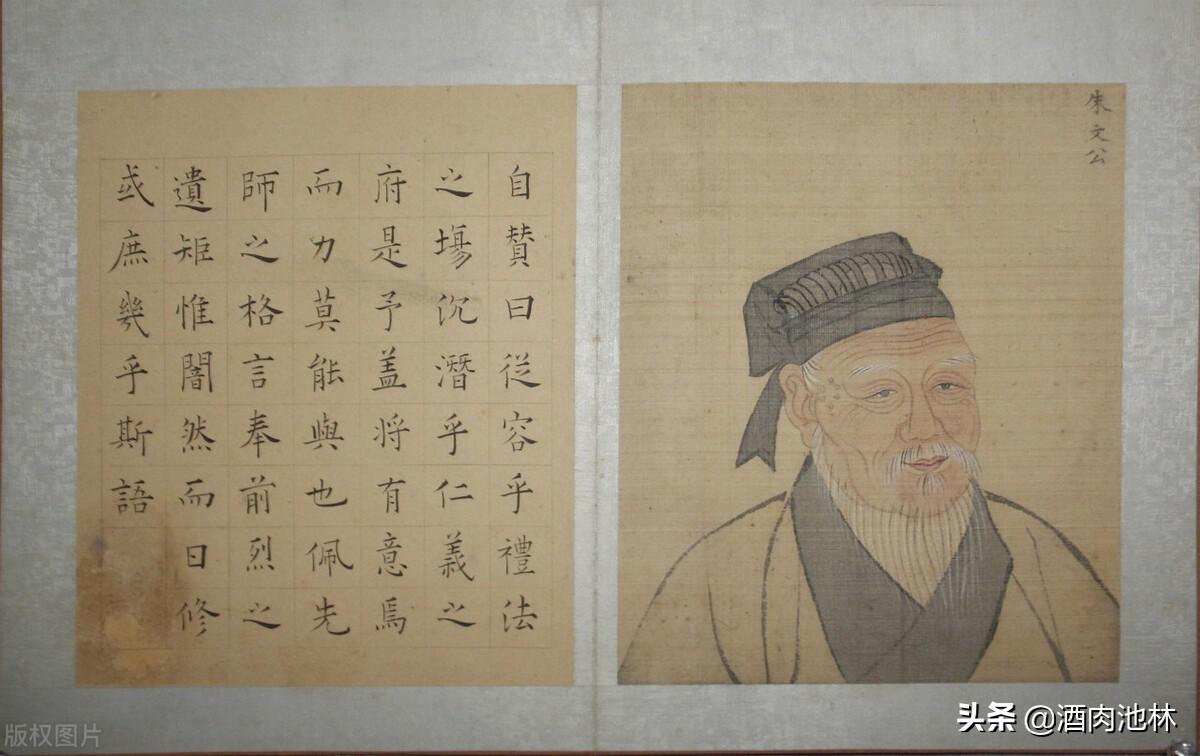 朱文公
自贊曰従容乎禮法
之塲沉潛乎仁義之
府是予盖将有意焉
而力莫能與也佩先
師之格言奉前烈之
遺矩惟闇然而日修
或庶幾乎斯語
版权图片
头条 @酒肉池林